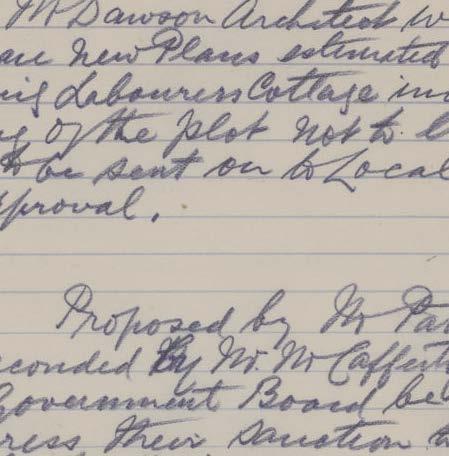 Mr Dawson Architect w
are New Plans estimated
ing Labourers Cottage in
g of the plot not to
to be sent on to Local
pproval.
Proposed by Mr Pa
econded By Mr. Mc Caffert
Government Board be
ress their sanction t